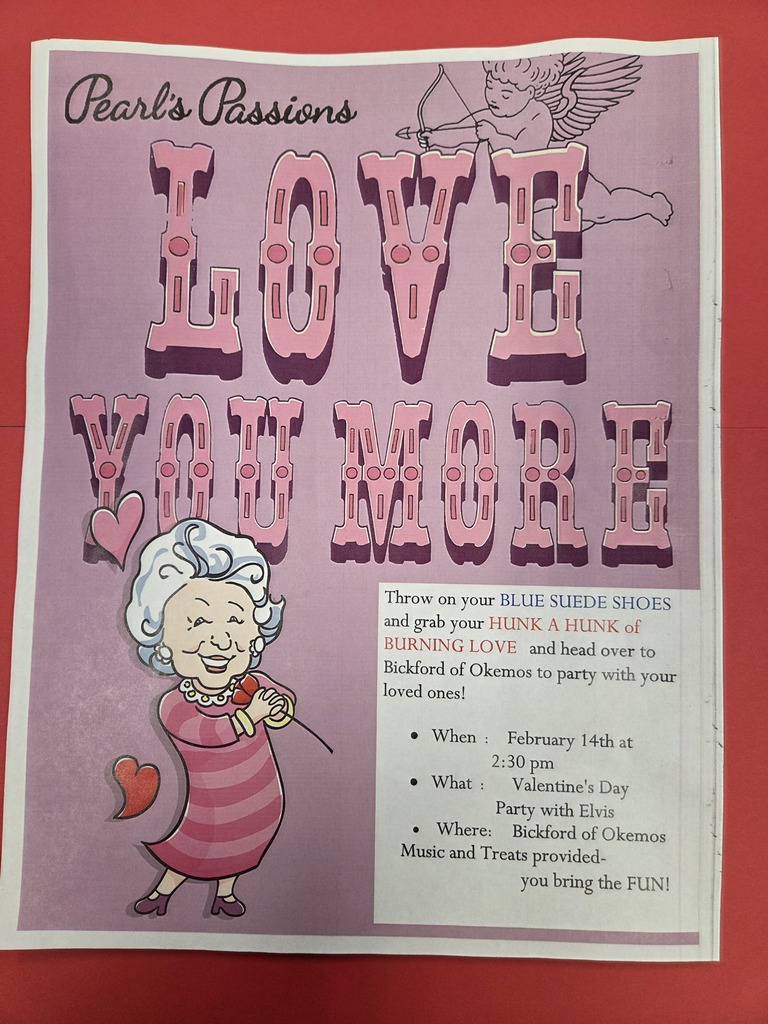 Pearl's Passions
LOVE
YOU MORE
Throw on your BLUE SUEDE SHOES
and grab your HUNK A HUNK of
BURNING LOVE and head over to
Bickford of Okemos to party with your
loved ones!
• When : February 14th at
2:30 pm
• What : Valentine's Day
Party with Elvis
• Where: Bickford of Okemos
Music and Treats provided-
you bring the FUN!